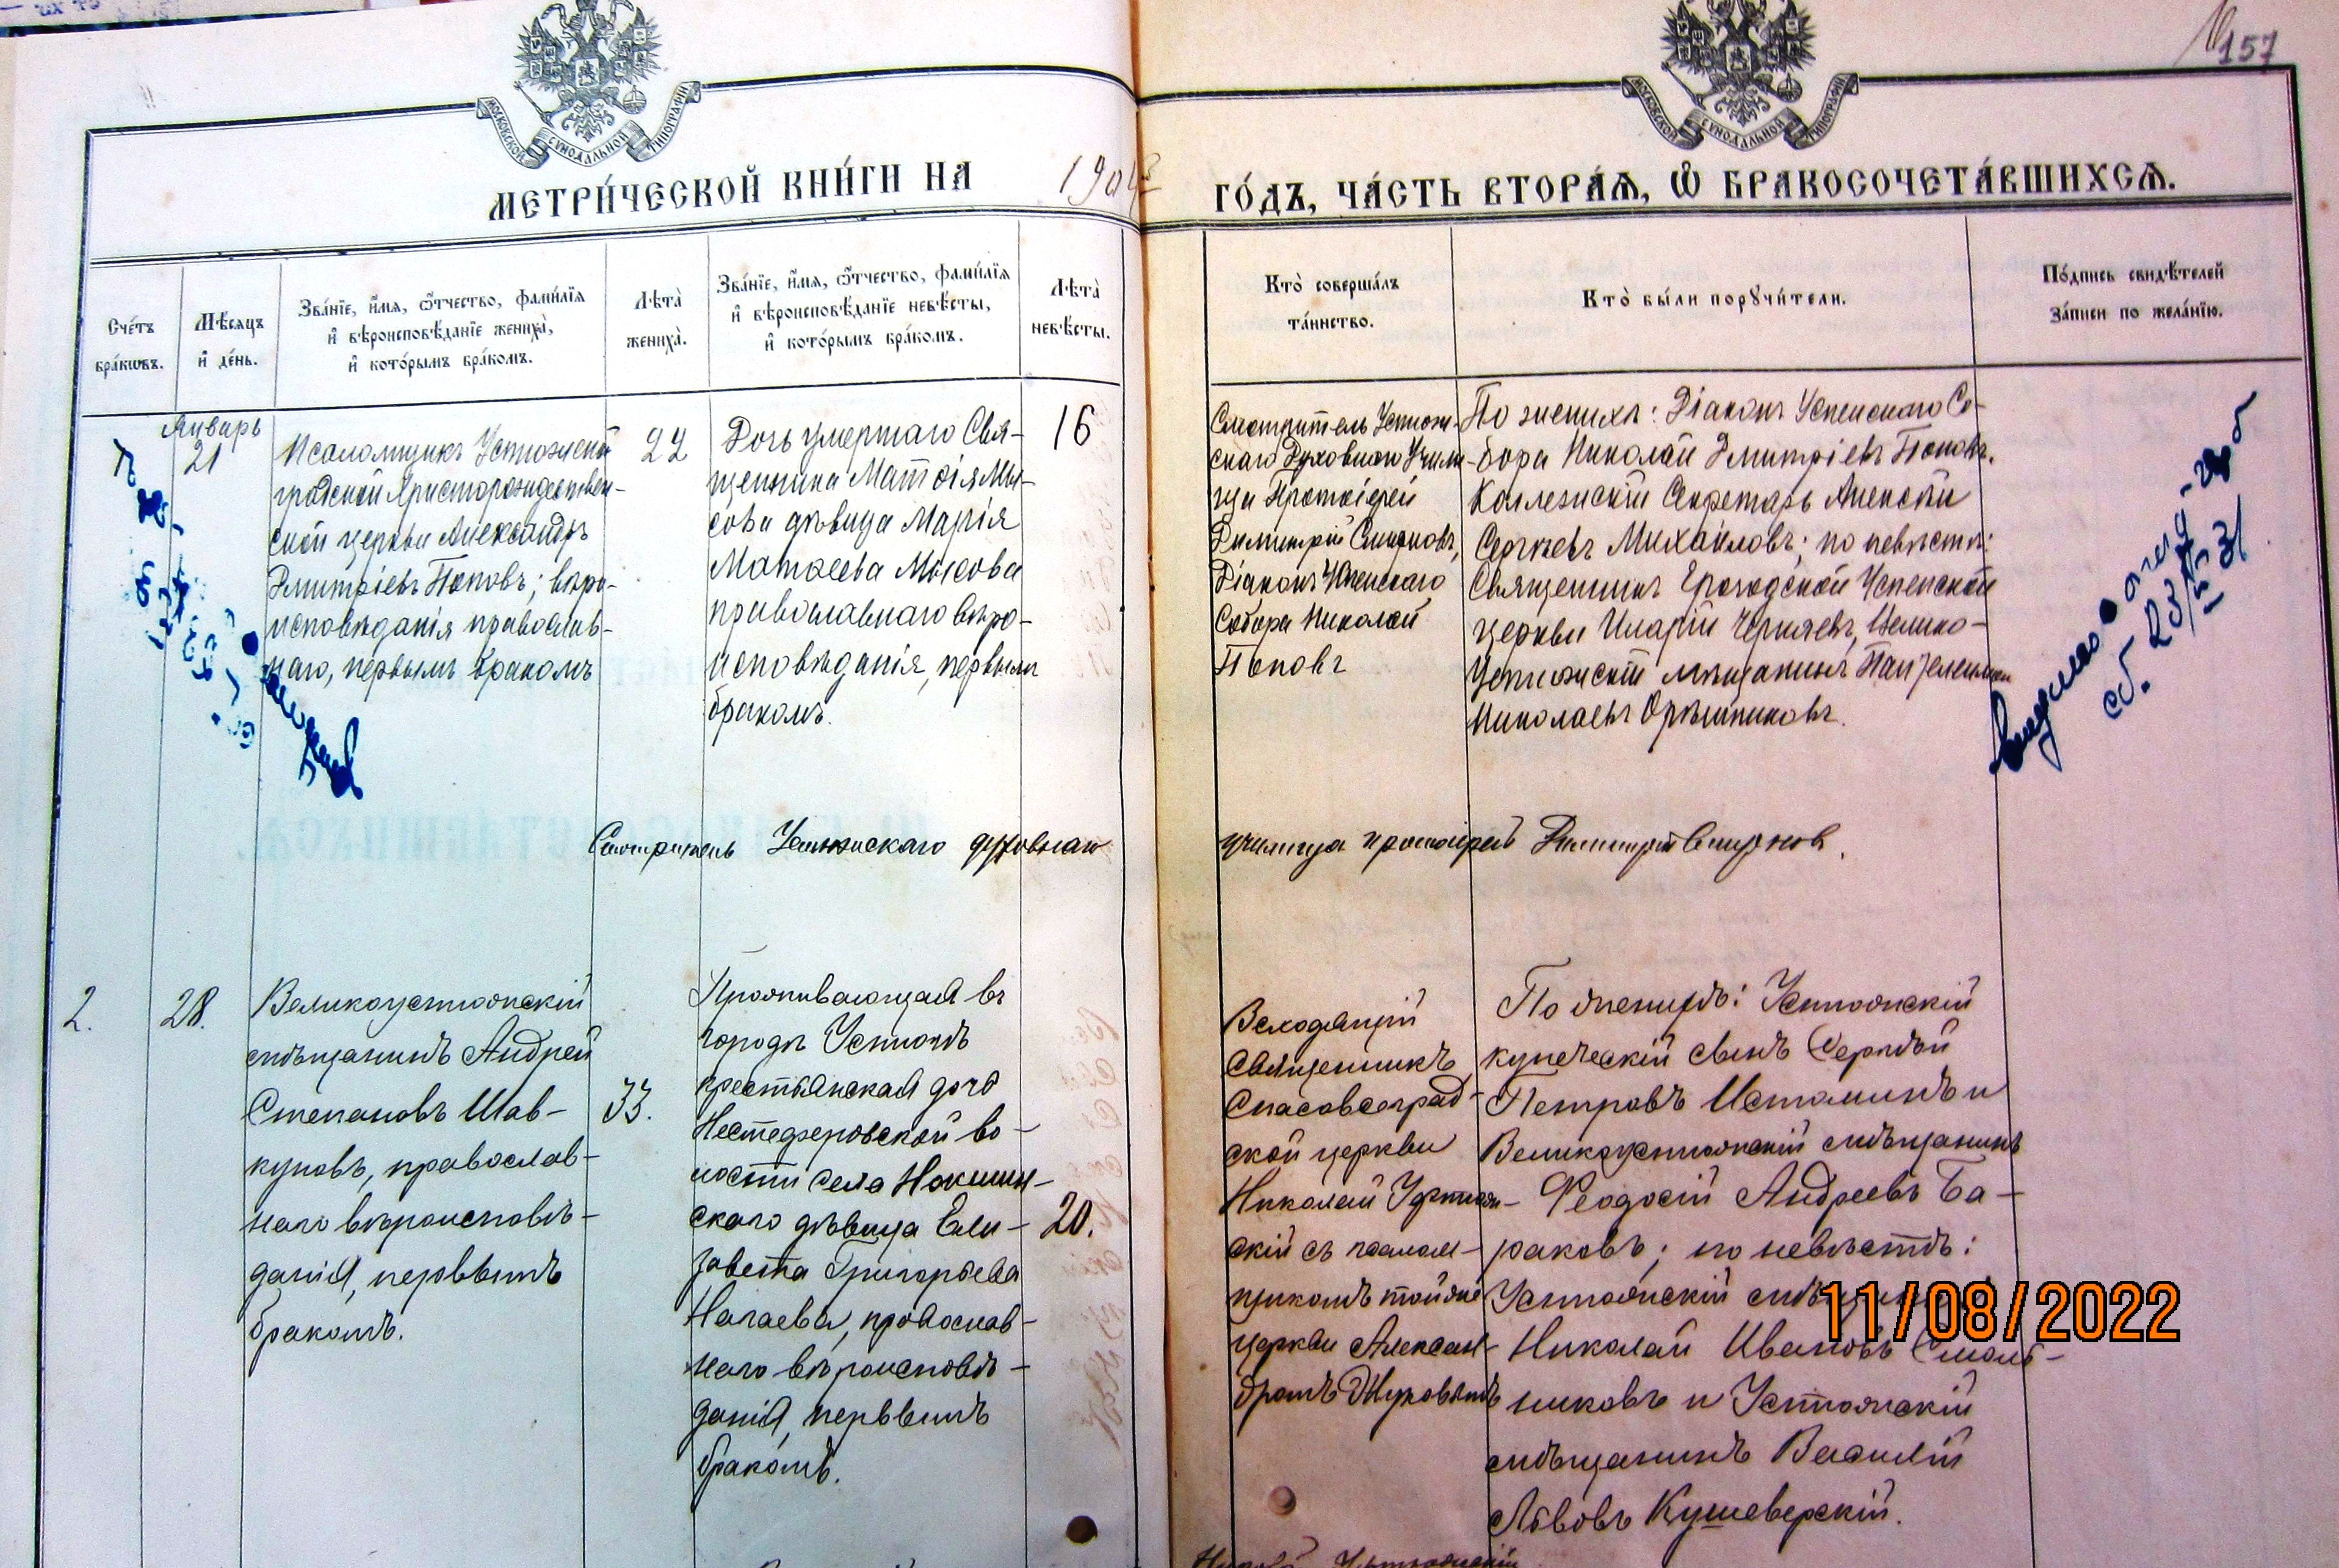 157
МОСКОВСКОЙ СѴНОДАЛЬНОЙ ТИПОГРАФІИ
МОСКОВСКОЙ СѴНОДАЛЬНОЙ ТИПОГРАФІИ
МЕТРИ́ЧЕСКОЙ КНИ́ГИ НА 1904 ГО́ДЪ, ЧА́СТЬ ВТОРА́Я, Ѡ БРАКОСОЧЕТА́ВШИХСЯ.
Сче́тъ
бра́кѡвъ.
Мѣ́сяцъ
и҆ де́нь.
Зва́нїе, и҆́мя, ѻ҆́тчество, фами́лїя
и҆ вѣроисповѣ́данїе жениха̀,
и҆ кото́рымъ бра́комъ.
Лѣта̀
жениха̀.
Зва́нїе, и҆́мя, ѻ҆́тчество, фами́лїя
и҆ вѣроисповѣ́данїе невѣ́сты,
и҆ кото́рымъ бра́комъ.
Лѣта̀
невѣ́сты.
Кто̀ соверша́лъ
та́инство.
Кто̀ бы́ли порꙋчи́тели.
По́дпись свидѣ́телей
за́писи по жела́нїю.
Январь
21
Псаломщикъ Устюжской
градской Христорождествен-
ской церкви Александръ
Дмитріевъ Поповъ; вѣро-
исповѣданія православ-
наго, первымъ бракомъ
22
Дочь умершаго Свя-
щенника Матѳія Мы-
сова дѣвица Марія
Матѳеева Мысова
православнаго вѣро-
исповѣданія, первымъ
бракомъ.
16
Смотритель Устюж-
скаго Духовнаго Учили-
ща Протоіерей
Димитрій Смирновъ,
Діаконъ Успенскаго
Собора Николай
Поповъ
По женихѣ: Діаконъ Успенскаго Со-
бора Николай Дмитріевъ Поповъ.
Коллежскій Секретарь Алексѣй
Сергѣевъ Михайловъ; по невѣстѣ:
Священникъ Градской Успенской
церкви Иларій Черняевъ, Велико-
Устюжскій мѣщанинъ Пантелеимон
Николаевъ Орѣшниковъ.
Смотритель Устюжскаго духовнаго училища протоіерей Димитрій Смирнов.
2.
28.
Великоустюжскій
мѣщанинъ Андрей
Степановъ Шав-
куновъ, православ-
наго вѣроисповѣ-
данія, первымъ
бракомъ.
33.
Проживающая въ
городѣ Устюгѣ
крестьянская дочь
Нестеферовской во-
лости села Нокшин-
скаго дѣвица Ели-
завета Григорьева
Нагаева, православ-
наго вѣроисповѣ-
данія, первымъ
бракомъ.
20.
Священникъ
Спасовсеград-
ской церкви
Николай
скій съ псалом-
щикомъ той же
церкви Алексан-
дромъ Жуковымъ
По женихѣ: Устюжскій
купеческій сынъ Сергѣй
Петровъ Истоминъ и
Великоустюжскій мѣщанинъ
Ѳеодосій Андреевъ Ба-
раковъ; по невѣстѣ:
Устюжскій
Николай Ивановъ Смоль-
никовъ и Устюжскій
мѣщанинъ Василій
Львовъ Кушеверскій.
11/08/2022